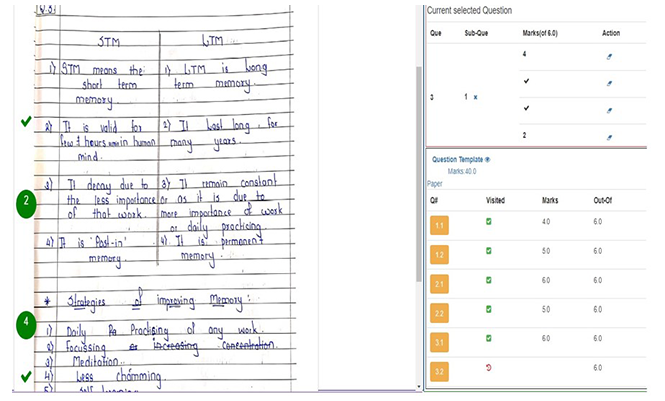 Q.3)
STM LTM
1) STM means the 1) LTM is Long
short term term memory.
memory.
2) It is valid for 2) It Last long, for
few hours in human many years.
mind.
3) It decay due to 3) It remain constant
the less importance or as it is due to
of that work. more importance of work
or daily practicing.
4) It is 'Past-in' 4) It is permanent
memory. memory.
* Strategies of improving Memory :
1) Daily Practising of any work.
2) Focussing increasing concentration.
3) Meditation.
4) Less chamming.
5)
2
4
Current selected Question
Que Sub-Que Marks(of 6.0) Action
4
3 1 x
2
Question Template
Marks:40.0
Paper
Q# Visited Marks Out-Of
1.1 4.0 6.0
1.2 5.0 6.0
2.1 6.0 6.0
2.2 5.0 6.0
3.1 6.0 6.0
3.2 6.0